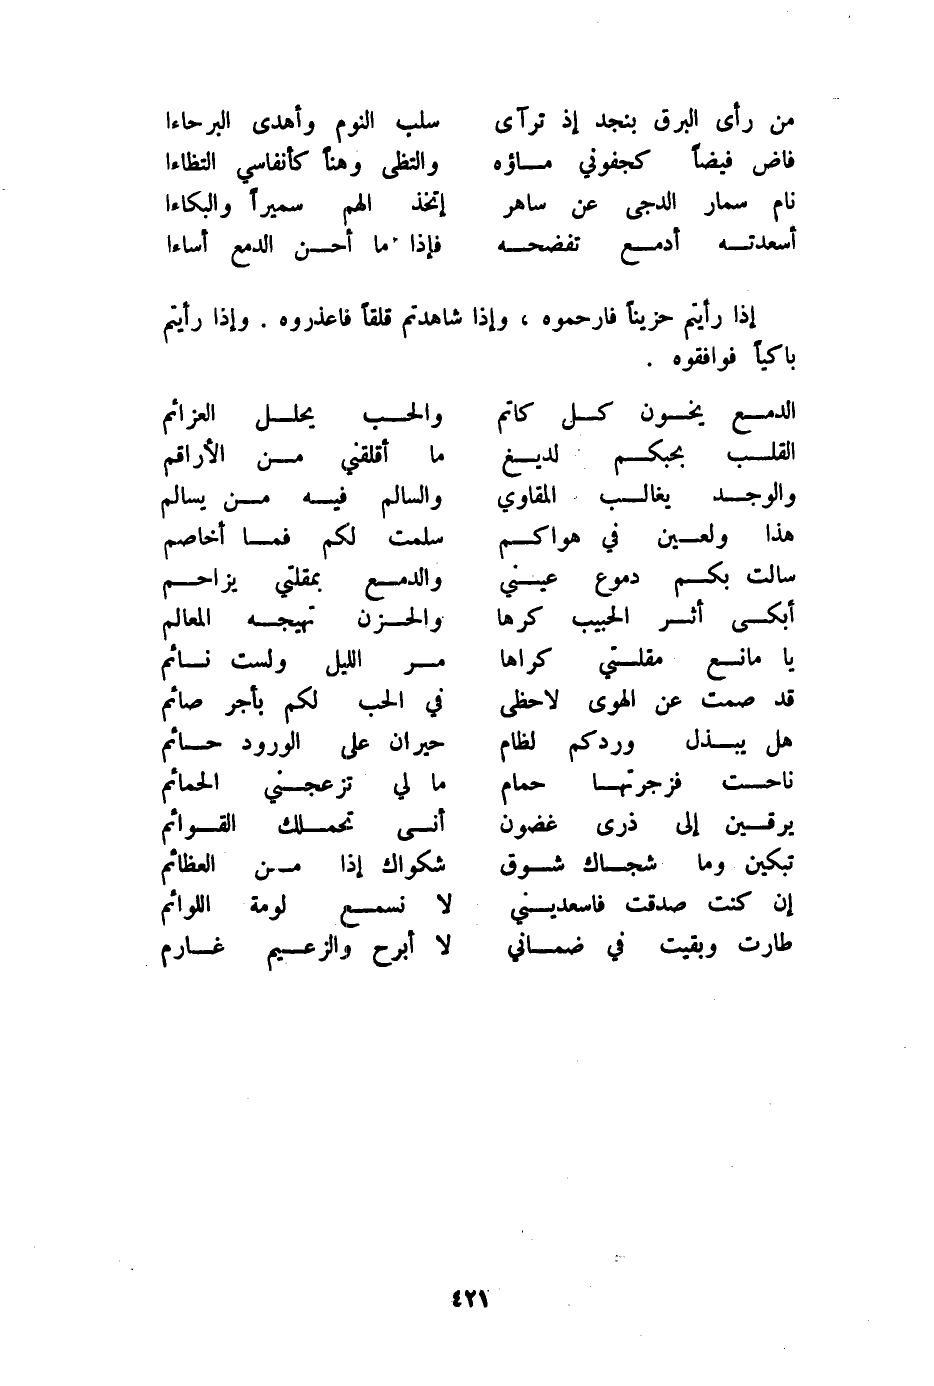 من رأى البرق بنجد إذ ترآى سلب النوم وأهدى البرحاءا
فاض فيضاً كجفوني مـاؤه والتظى وهناً كأنفاسي التظاءا
نام سمار الدجى عن ساهر إتخذ الهم سميراً والبكاءا
أسعدته أدمع تفضحه فإذا ما أحسن الدمع أساءا
إذا رأيتم حزيناً فارحموه ، وإذا شاهدتم قلقاً فاعذروه . وإذا رأيتم
باكياً فوافقوه .
الدمع يخون كل كاتم والحب يحلل العزائم
القلب بحبكم لديغ ما أقلقني من الأراقم
والوجد يغالب المقاوي والسالم فيه من يسالم
هذا ولعين في هواكم سلمت لكم فما أخاصم
سالت بكم دموع عيني والدمع بمقلتي يزاحم
أبكى أثر الحبيب كرها والحزن تهيجه المعالم
يا مانع مقلتي كراها مر الليل ولست نائم
قد صمت عن الهوى لاحظى في الحب لكم بأجر صائم
هل يبذل وردكم لظام حيران على الورود حائم
ناحت فزجرتها حمام ما لي تزعجني الحمائم
يرقين إلى ذرى غضون أنى تحملك القوائم
تبكين وما شجاك شوق شكواك إذا من العظائم
إن كنت صدقت فاسعديني لا نسمع لومة اللوائم
طارت وبقيت في ضماني لا أبرح والزعيم غارم
٤٢١